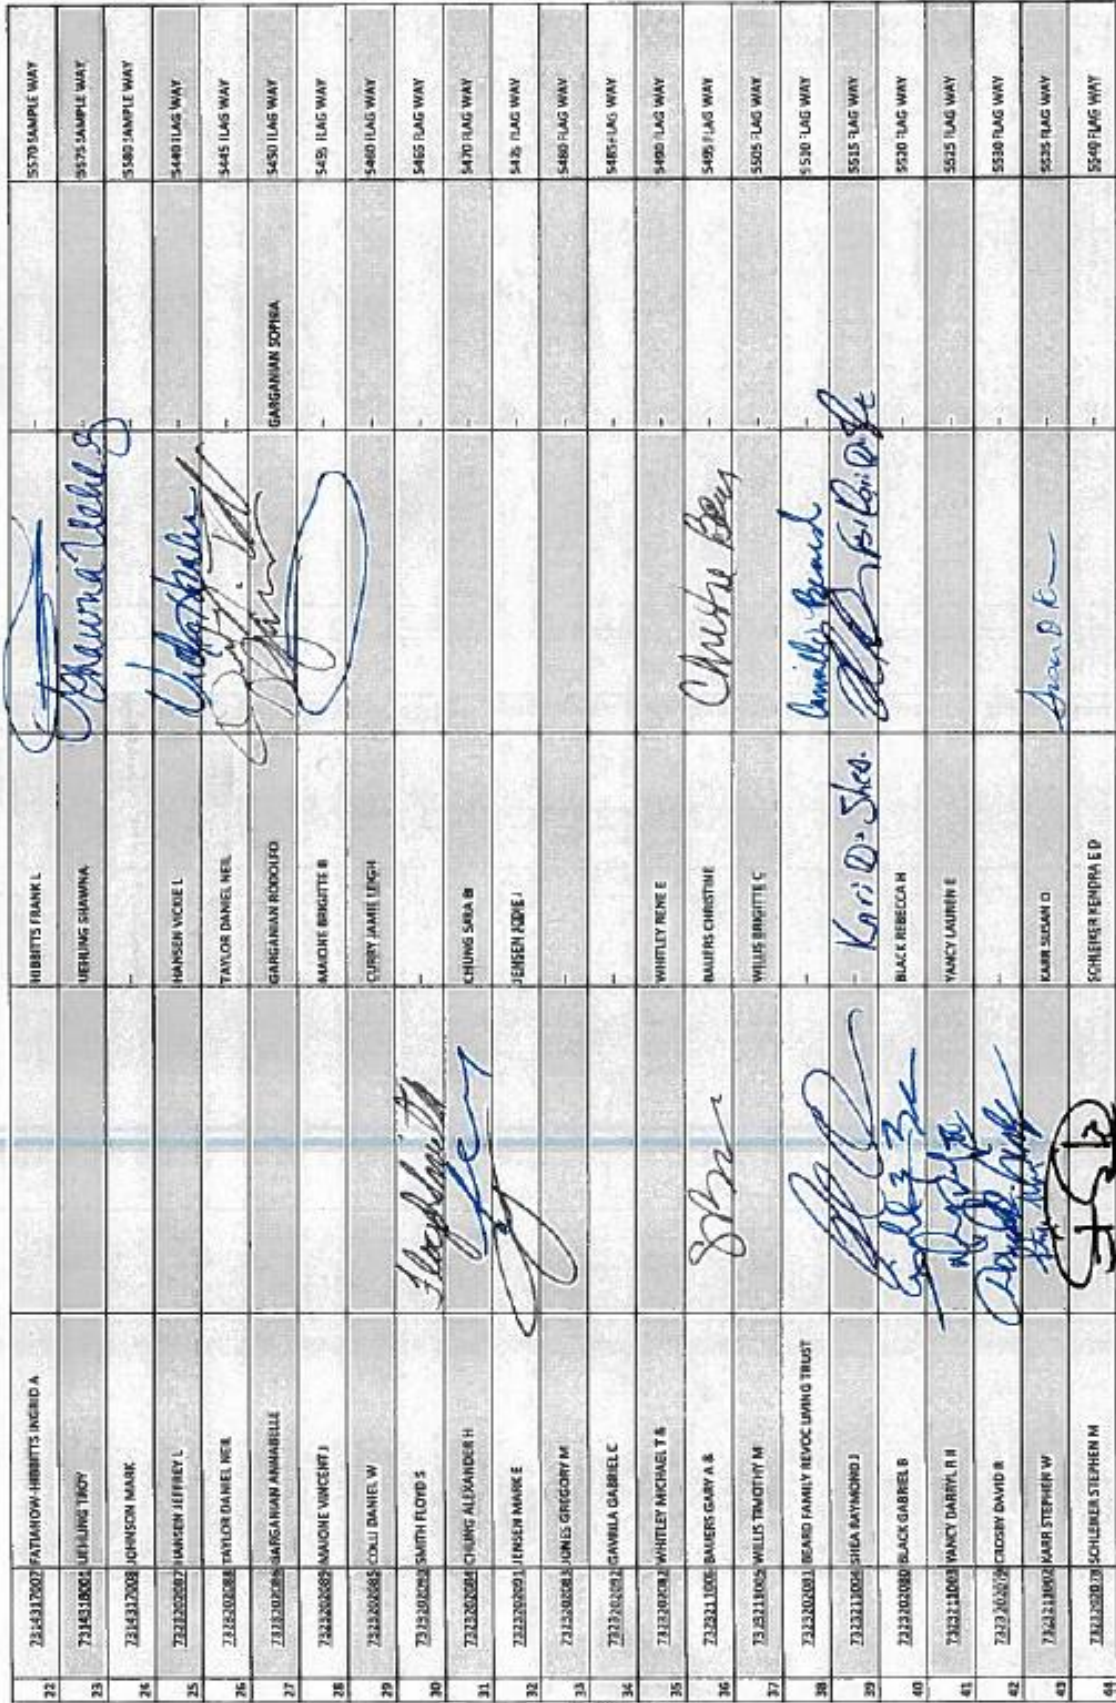 22 7314317007 FATIANOW-HIBBITTS INGRID A HIBBITTS FRANK L - 5570 SAMPLE WAY
23 7314318001 UEHLING TROY UEHLING SHAWNA Shawna Uehling - 5575 SAMPLE WAY
24 7314317008 JOHNSON MARK - - 5580 SAMPLE WAY
25 7323202087 HANSEN JEFFREY L HANSEN VICKIE L - 5440 FLAG WAY
26 7323202088 TAYLOR DANIEL NEIL TAYLOR DANIEL NEIL - 5445 FLAG WAY
27 GARGANIAN ANNABELLE GARGANIAN RODOLFO GARGANIAN SOPHIA 5450 FLAG WAY
28 7323202089 MAIONE VINCENT J MAIONE BRIGITTE B - 5455 FLAG WAY
29 7323202085 COLLI DANIEL W CURRY JAMIE LEIGH - 5460 FLAG WAY
30 7323202090 SMITH FLOYD S Floyd Smith - - 5465 FLAG WAY
31 7323202084 CHUNG ALEXANDER H CHUNG SARA B - 5470 FLAG WAY
32 7323202091 JENSEN MARK E JENSEN JODIE J - 5475 FLAG WAY
33 7323202083 JONES GREGORY M - - 5480 FLAG WAY
34 7323202092 GAVRILA GABRIEL C - - 5485 FLAG WAY
35 7323202082 WHITLEY MICHAEL T & WHITLEY RENE E - 5490 FLAG WAY
36 7323211006 BAUERS GARY A & BAUERS CHRISTINE - 5495 FLAG WAY
37 7323211005 WILLIS TIMOTHY M WILLIS BRIGITTE C - 5505 FLAG WAY
38 7323202081 BEARD FAMILY REVOC LIVING TRUST - - 5510 FLAG WAY
39 7323211004 SHEA RAYMOND J - - 5515 FLAG WAY
40 7323202080 BLACK GABRIEL B BLACK REBECCA H - 5520 FLAG WAY
41 7323211003 YANCY DARRYL R II YANCY LAUREN E - 5525 FLAG WAY
42 7323202079 CROSBY DAVID R - - 5530 FLAG WAY
43 7323211002 KARR STEPHEN W KARR SUSAN D - 5535 FLAG WAY
44 7323202078 SCHLEIKER STEPHEN M SCHLEIKER KENDRA E D - 5540 FLAG WAY